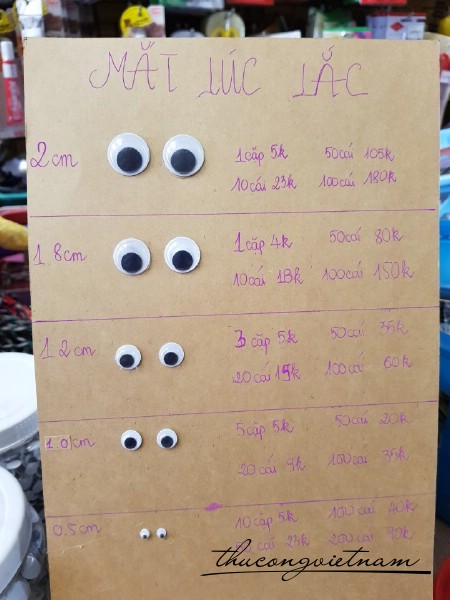 MẮT LÚC LẮC
2cm
1 cặp 5k 50 cái 105k
10 cái 23k 100 cái 180k
1.8cm
1 cặp 4k 50 cái 80k
10 cái 18k 100 cái 150k
1.2cm
3 cặp 5k 50 cái 35k
20 cái 15k 100 cái 60k
1.0cm
5 cặp 5k 50 cái 20k
20 cái 9k 100 cái 35k
0.5cm
10 cặp 5k 100 cái 40k
cái 24k 200 cái 90k
thucongvietnam